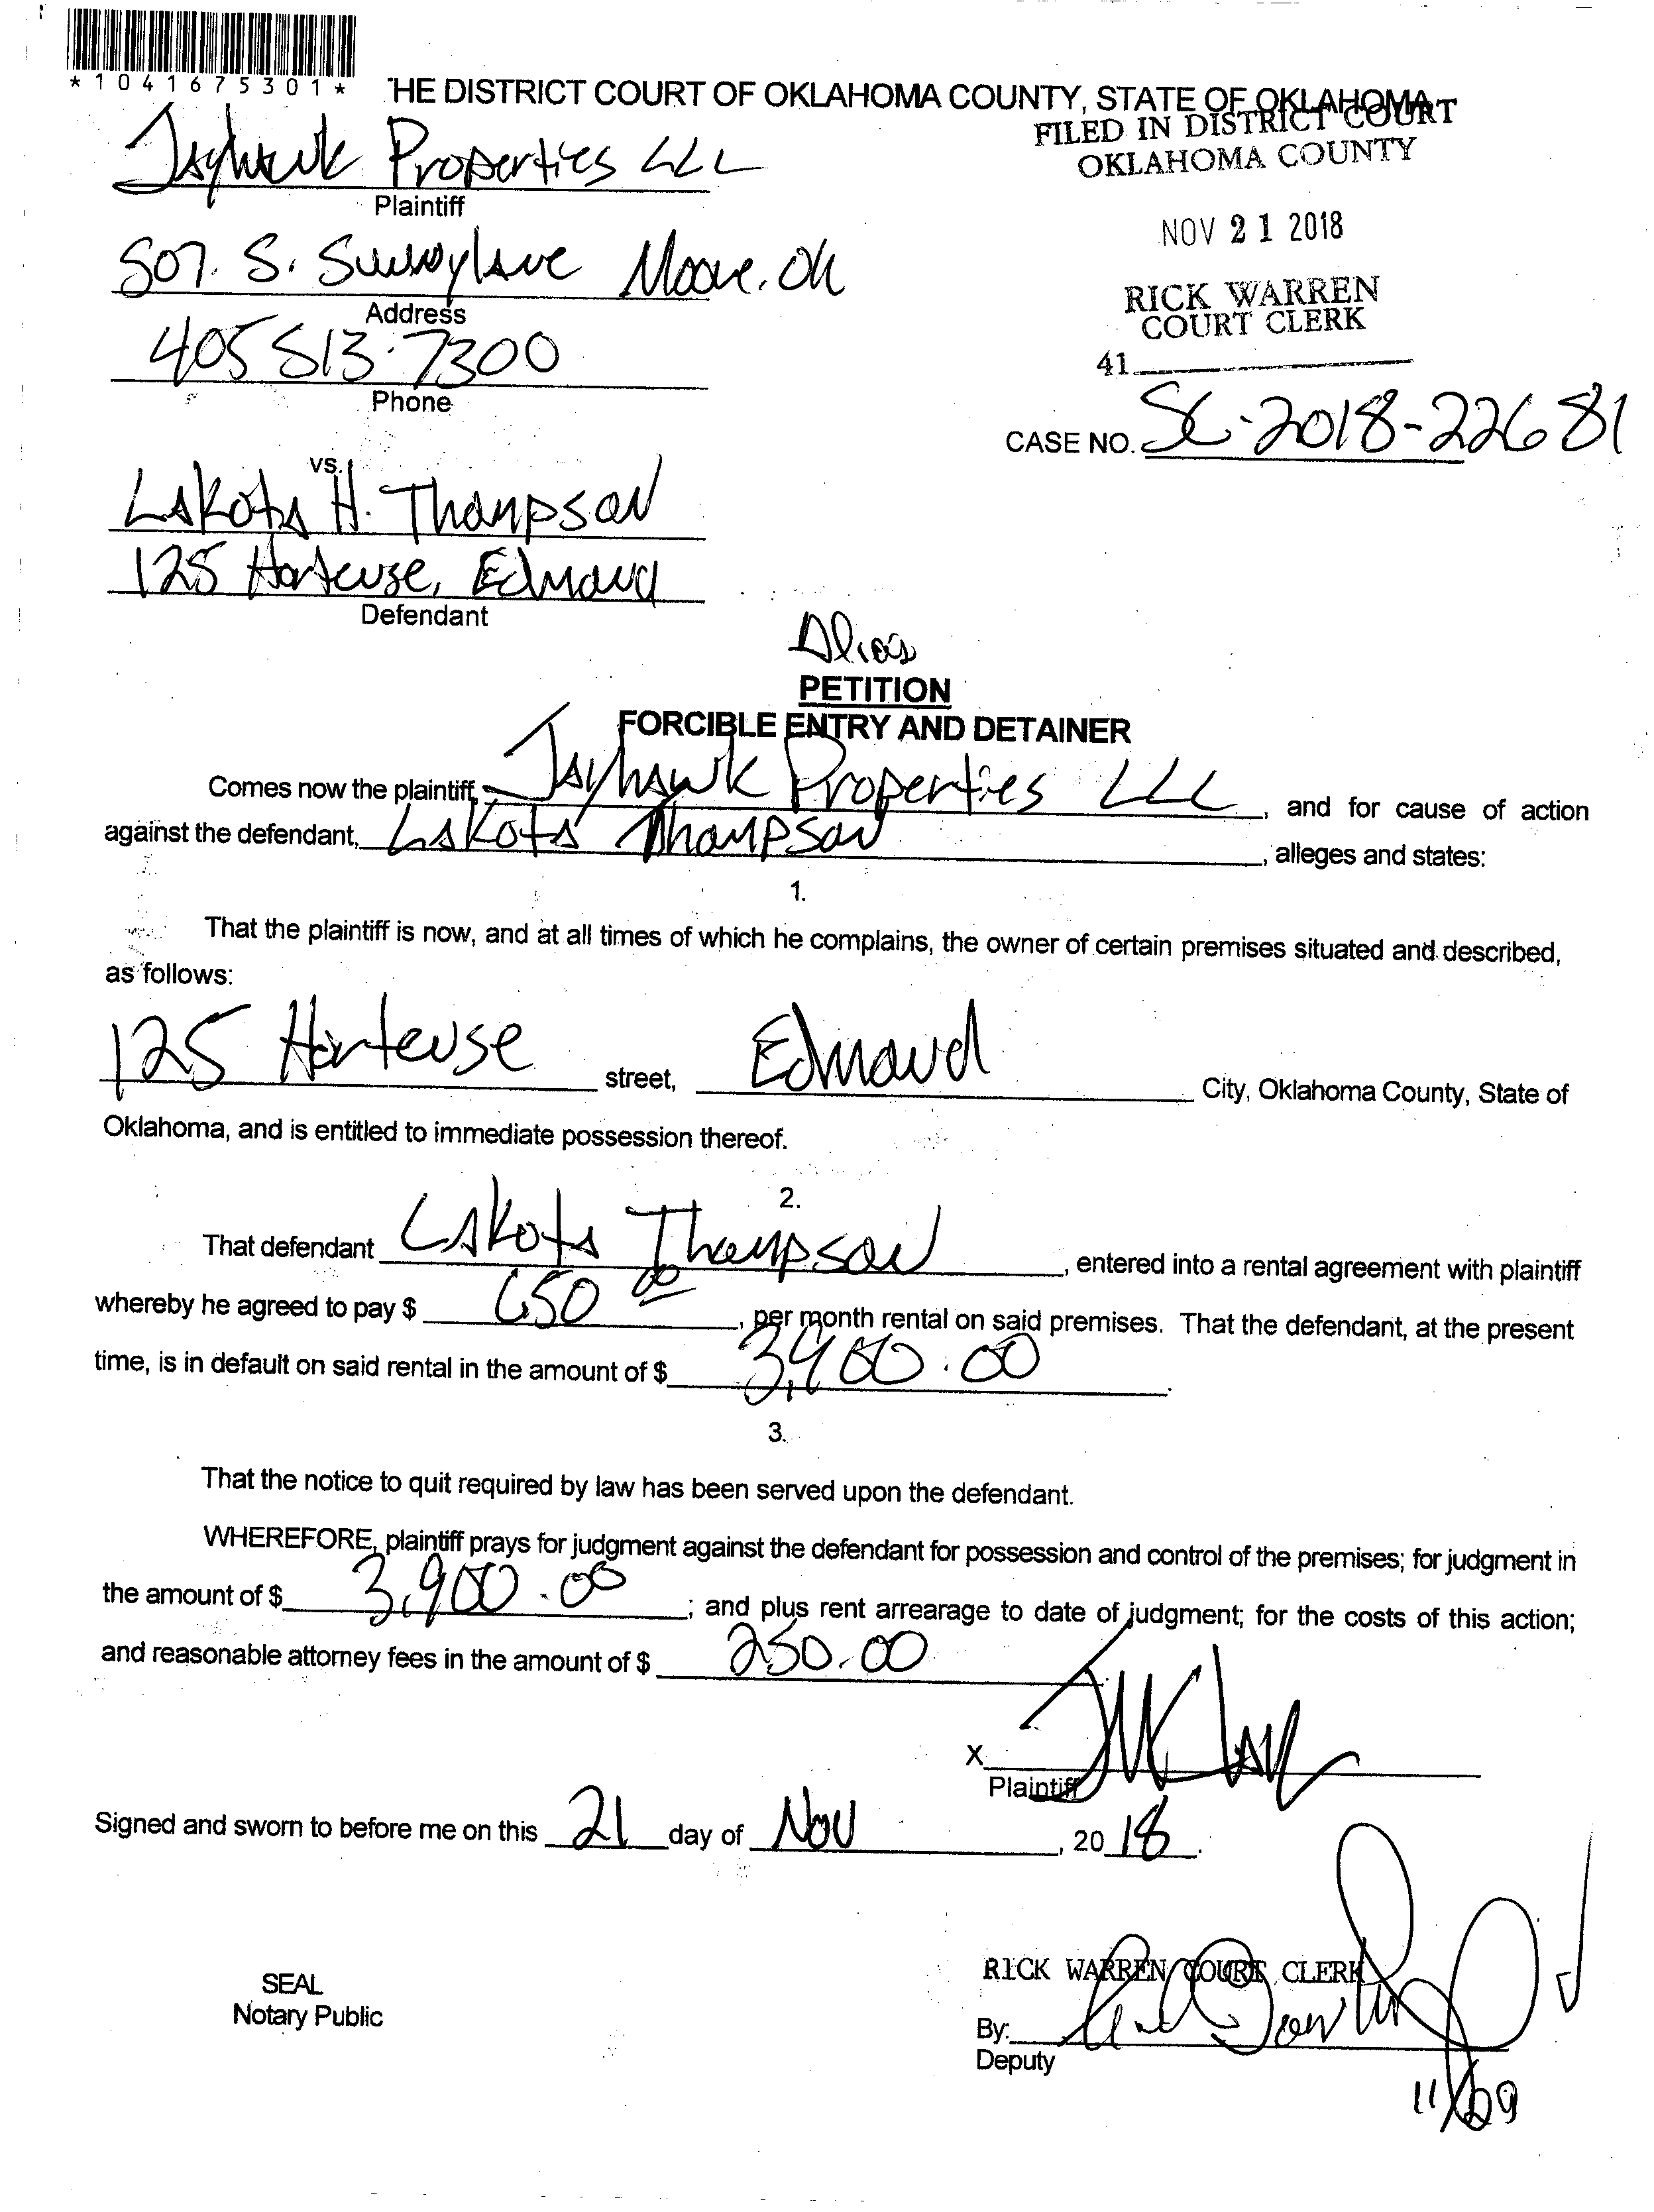 *1041675301*
HE DISTRICT COURT OF OKLAHOMA COUNTY, STATE OF OKLAHOMA
FILED IN DISTRICT COURT
OKLAHOMA COUNTY
Jayhawk Properties LLC
Plaintiff
NOV 21 2018
507. S. Sunnylane Moore, Ok
Address
RICK WARREN
COURT CLERK
405 513-7300
Phone
41
CASE NO. SC-2018-22681
vs.
Lakota H. Thompson
125 Hortense, Edmond
Defendant
Alias
PETITION
FORCIBLE ENTRY AND DETAINER
Comes now the plaintiff, Jayhawk Properties LLC, and for cause of action
against the defendant, Lakota Thompson, alleges and states:
1.
That the plaintiff is now, and at all times of which he complains, the owner of certain premises situated and described,
as follows:
125 Hortense street, Edmond City, Oklahoma County, State of
Oklahoma, and is entitled to immediate possession thereof.
2.
That defendant Lakota Thompson, entered into a rental agreement with plaintiff
whereby he agreed to pay $ 650 00, per month rental on said premises. That the defendant, at the present
time, is in default on said rental in the amount of $ 3,900.00.
3.
That the notice to quit required by law has been served upon the defendant.
WHEREFORE, plaintiff prays for judgment against the defendant for possession and control of the premises; for judgment in
the amount of $ 3,900.00; and plus rent arrearage to date of judgment; for the costs of this action;
and reasonable attorney fees in the amount of $ 250.00
X
Plaintiff
Signed and sworn to before me on this 21 day of Nov, 2018.
RICK WARREN COURT CLERK
SEAL
Notary Public
By:
Deputy
11/29